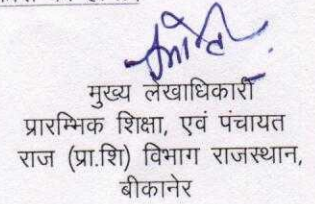 मुख्य लेखाधिकारी
प्रारम्भिक शिक्षा, एवं पंचायत
राज (प्रा.शि) विभाग राजस्थान,
बीकानेर